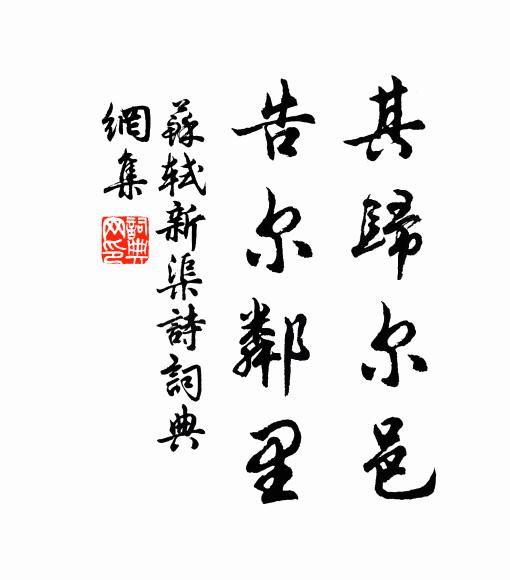 其歸尔邑
告尔鄰里
蘇軾新渠詩詞典
網集
詞典网印